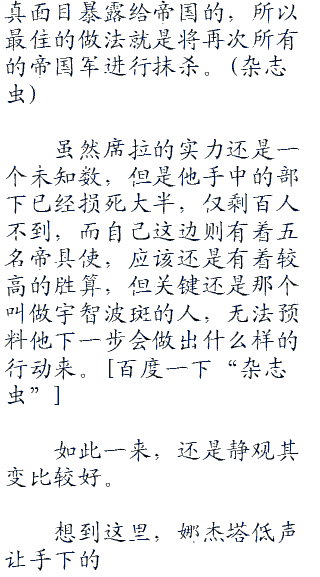 真面目暴露给帝国的，所以
最住的做法就是将再次所有
的帝国军进行抹杀。(杂志
虫)
虽然席拉的实力还是一
个未知数，但是他手中的部
下已经损死大半，仅剩百人
不到，而自己这边则有着五
名帝具使，应该还是有着较
高的胜算，但关键还是那个
叫做宇智波斑的人，无法预
料他下一步会做出什么样的
行动来。[百度一下“杂志
虫”]
如此一来，还是静观其
变比较好。
想到这里，娜杰塔低声
让手下的